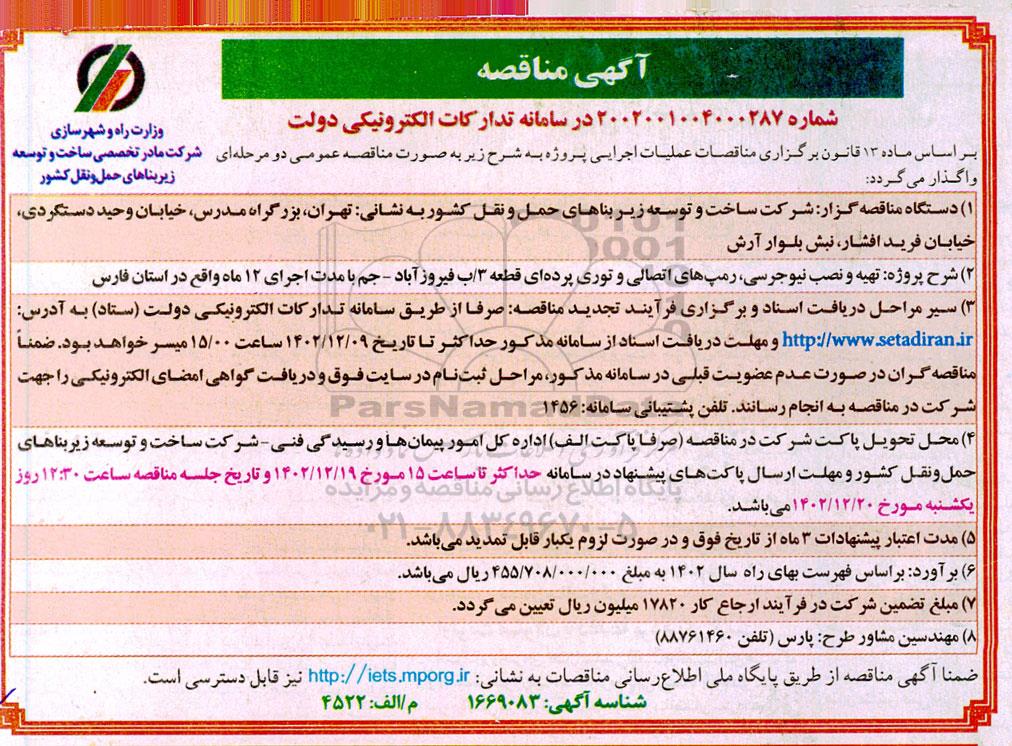 آگهی مناقصه
شماره ۲۰۰۲۰۰۱۰۰۴۰۰۰۲۸۷ در سامانه تدارکات الکترونیکی دولت
وزارت راه و شهرسازی
شرکت مادر تخصصی ساخت و توسعه
زیربناهای حمل‌ونقل کشور
بر اساس ماده ۱۳ قانون برگزاری مناقصات عملیات اجرایی پروژه به شرح زیر به صورت مناقصه عمومی دو مرحله‌ای
واگذار می‌گردد:
۱) دستگاه مناقصه گزار: شرکت ساخت و توسعه زیربناهای حمل و نقل کشور به نشانی: تهران، بزرگراه مدرس، خیابان وحید دستگردی،
خیابان فرید افشار، نبش بلوار آرش
۲) شرح پروژه: تهیه و نصب نیوجرسی، رمپ‌های اتصالی و توری پرده‌ای قطعه ۳/ب فیروزآباد - جم با مدت اجرای ۱۲ ماه واقع در استان فارس
۳) سیر مراحل دریافت اسناد و برگزاری فرآیند تجدید مناقصه: صرفا از طریق سامانه تدارکات الکترونیکی دولت (ستاد) به آدرس:
http://www.setadiran.ir و مهلت دریافت اسناد از سامانه مذکور حداکثر تا تاریخ ۱۴۰۲/۱۲/۰۹ ساعت ۱۵/۰۰ میسر خواهد بود. ضمناً
مناقصه‌گران در صورت عدم عضویت قبلی در سامانه مذکور، مراحل ثبت‌نام در سایت فوق و دریافت گواهی امضای الکترونیکی را جهت
شرکت در مناقصه به انجام رسانند. تلفن پشتیبانی سامانه: ۱۴۵۶
۴) محل تحویل پاکت شرکت در مناقصه (صرفا پاکت الف) اداره کل امور پیمان‌ها و رسیدگی فنی - شرکت ساخت و توسعه زیربناهای
حمل‌ونقل کشور و مهلت ارسال پاکت‌های پیشنهاد در سامانه حداکثر تا ساعت ۱۵ مورخ ۱۴۰۲/۱۲/۱۹ و تاریخ جلسه مناقصه ساعت ۱۲:۳۰ روز
یکشنبه مورخ ۱۴۰۲/۱۲/۲۰ می‌باشد.
۵) مدت اعتبار پیشنهادات ۳ ماه از تاریخ فوق و در صورت لزوم یکبار قابل تمدید می‌باشد.
۶) برآورد: براساس فهرست بهای راه سال ۱۴۰۲ به مبلغ ۴۵۵/۷۰۸/۰۰۰/۰۰۰ ریال می‌باشد.
۷) مبلغ تضمین شرکت در فرآیند ارجاع کار ۱۷۸۲۰ میلیون ریال تعیین می گردد.
۸) مهندسین مشاور طرح: پارس (تلفن ۸۸۷۶۱۴۶۰)
ضمنا آگهی مناقصه از طریق پایگاه ملی اطلاع‌رسانی مناقصات به نشانی: http://iets.mporg.ir نیز قابل دسترسی است.
شناسه آگهی: ۱۶۶۹۰۸۳ م/الف: ۴۵۲۲
ParsNamadData
پایگاه اطلاع رسانی مناقصه و مزایده
۰۲۱-۸۸۳۴۹۶۷۰-۵